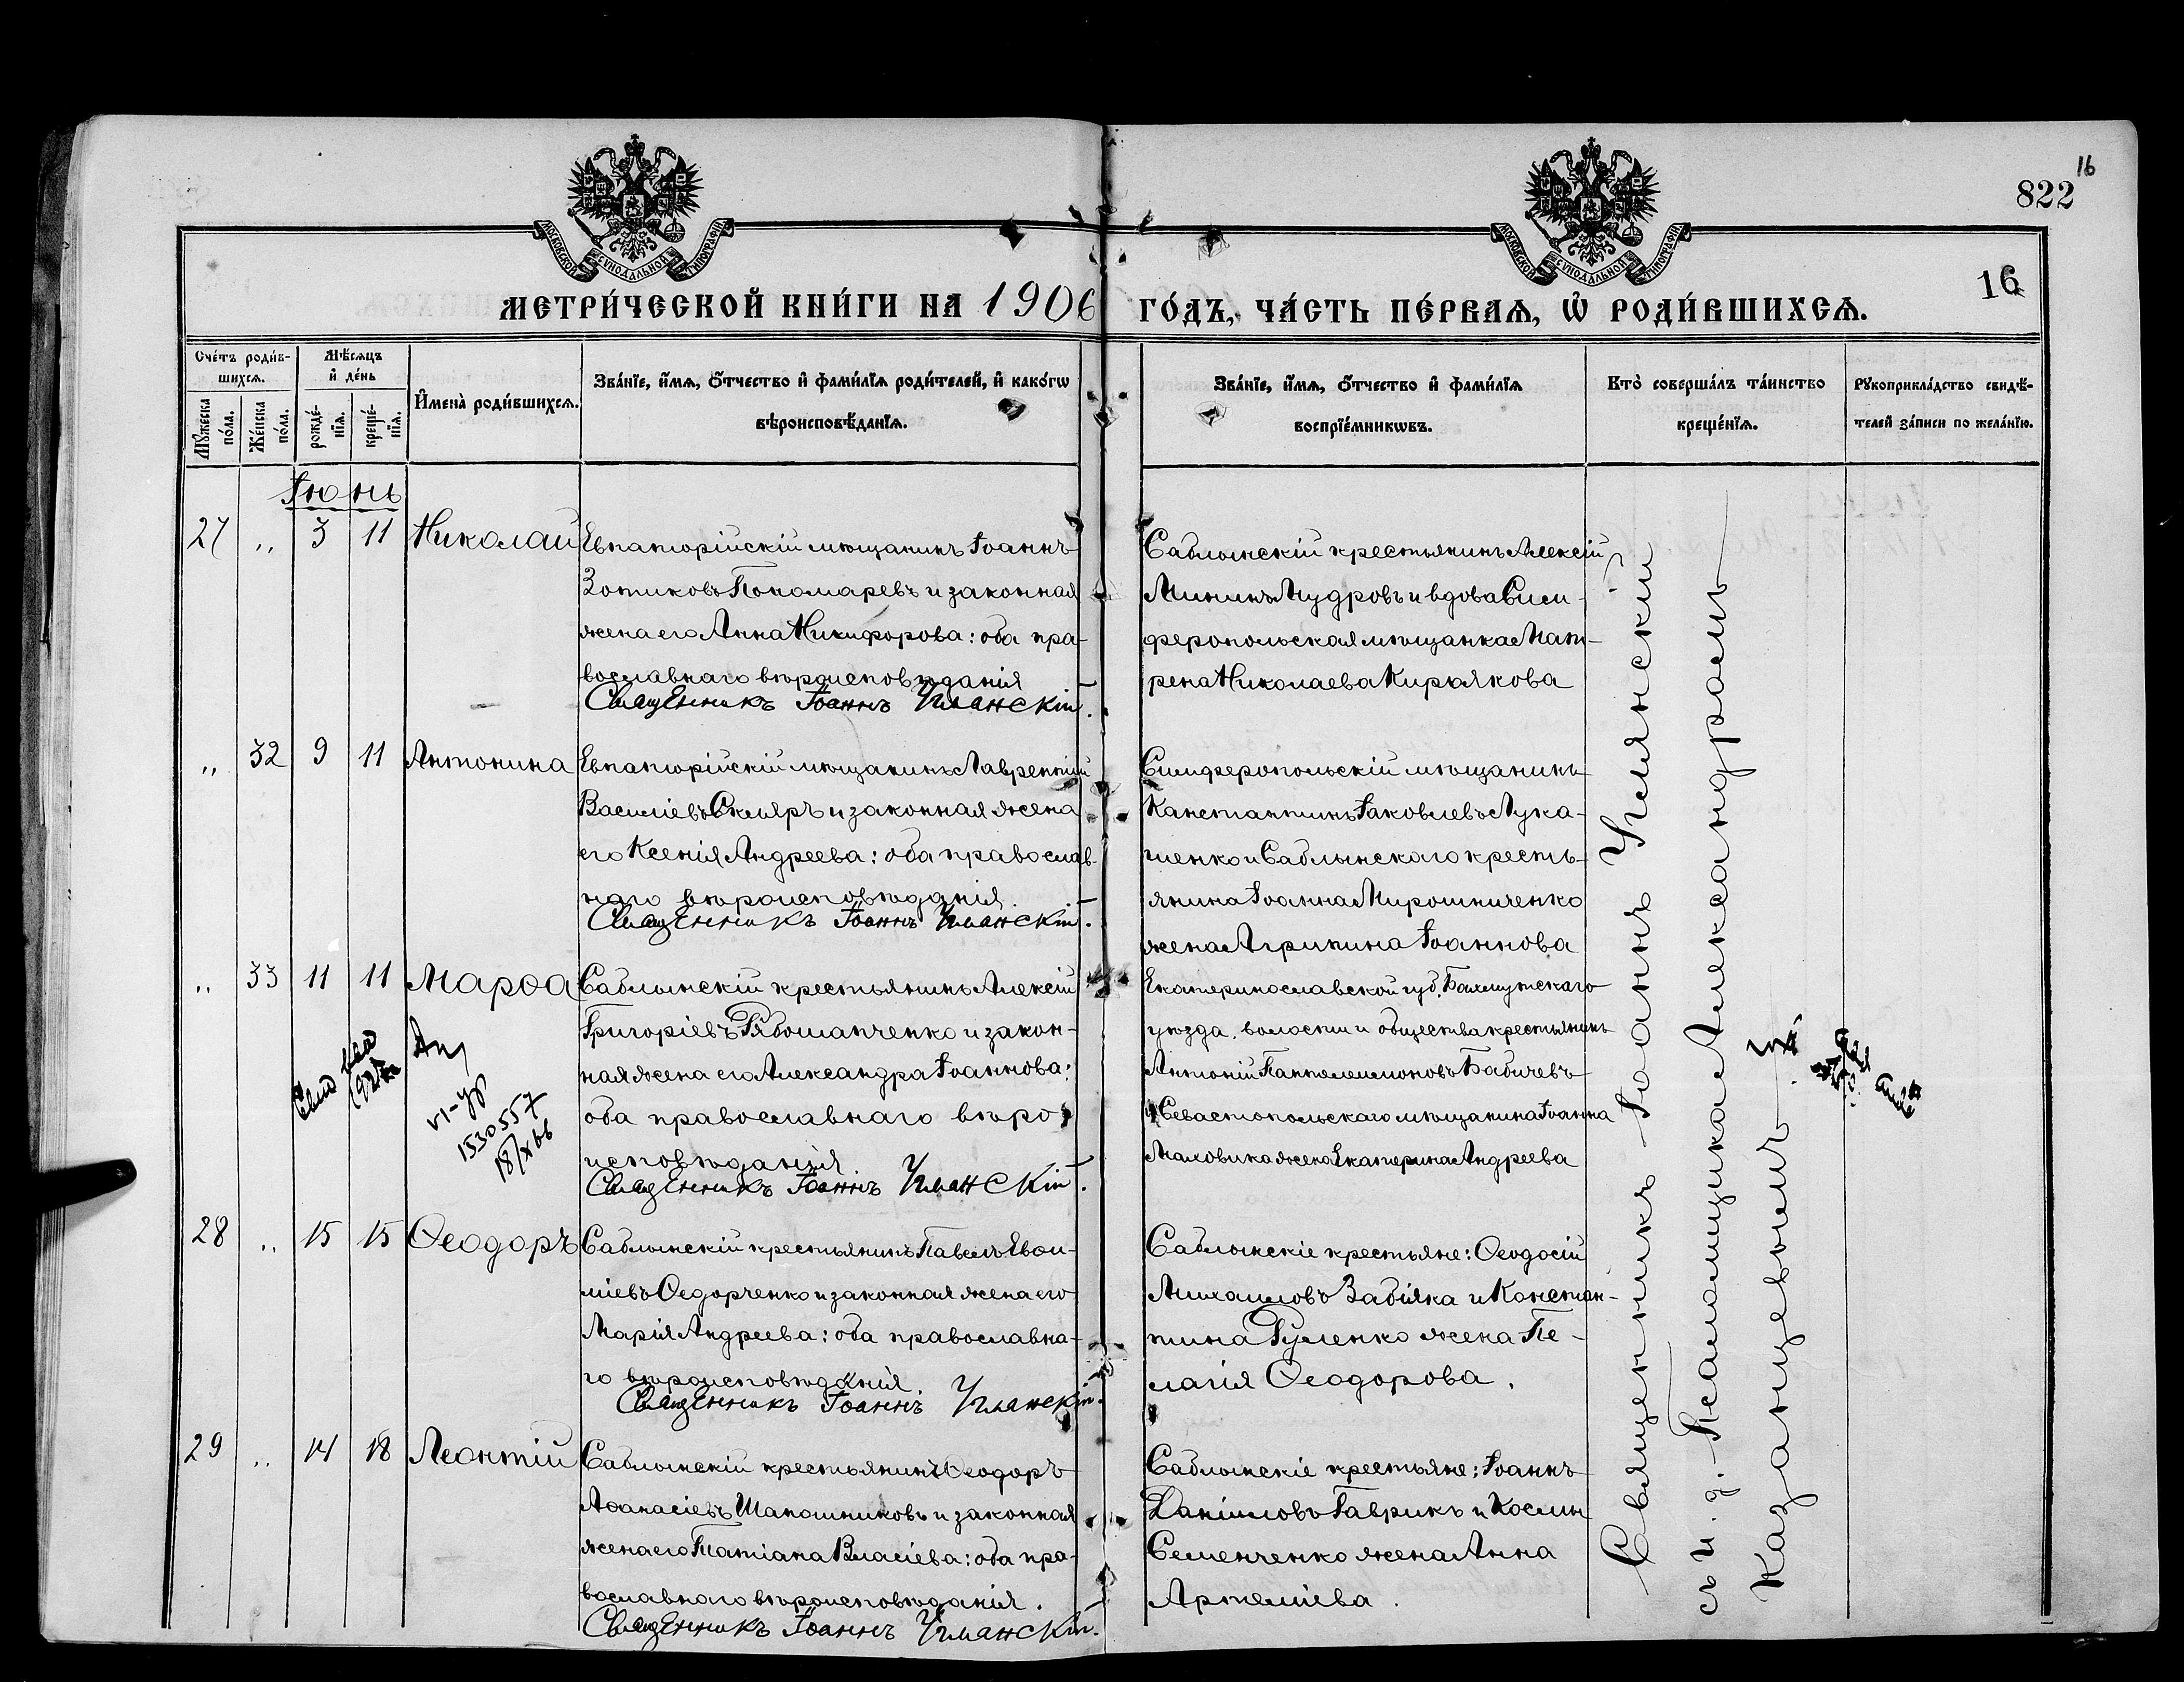 16
822
16
МОСКОВСКОЙ СѴНОДАЛЬНОЙ ТИПОГРАФІИ
МОСКОВСКОЙ СѴНОДАЛЬНОЙ ТИПОГРАФІИ
МЕТРИ́ЧЕСКОЙ КНИ́ГИ НА 1906 ГО́ДЪ, ЧА́СТЬ ПЕ́РВАѦ, Ѡ҆ РОДИ́ВШИХСѦ.
Сче́тъ роди́в-
шихсѧ.
Мѣ́сѧцъ
и҆ де́нь
Мꙋ́жеска по́ла.
Же́нска по́ла.
рожде́-
нїѧ.
креще́-
нїѧ.
И҆мена̀ роди́вшихсѧ.
Зва́нїе, и҆́мѧ, ѻ҆́тчество и҆ фами́лїѧ роди́телей, и҆ како́гѡ
вѣроисповѣ́данїѧ.
Зва́нїе, и҆́мѧ, ѻ҆́тчество и҆ фами́лїѧ
воспрїе́мникѡвъ.
Кто̀ соверша́лъ та́инство
креще́нїѧ.
Рꙋкоприкла́дство свидѣ́-
телей за́писи по жела́нїю.
Іюнь
27 „ 3 11 Николай
Евпаторійскій мѣщанинъ Іоаннъ
Зотиковъ Пономаревъ и законная
жена его Анна Никифорова: оба пра-
вославнаго вѣроисповѣданія
Священникъ Іоаннъ Уманскій.
Саблынскій крестьянинъ Алексій
Мининъ Мудровъ и вдова Сим-
феропольская мѣщанка Мат-
рена Николаева Кирьякова
„ 32 9 11 Антонина
Евпаторійскій мѣщанинъ Лаврентій
Василіевъ Скляръ и законная жена
его Ксенія Андреева: оба православ-
наго вѣроисповѣданія.
Священникъ Іоаннъ Уманскій.
Симферопольскій мѣщанинъ
Констаптинъ Іаковлевъ Лука-
шенко и Саблынскаго кресть-
янина Іоанна Мирошниченко
жена Агрипина Іоаннова
„ 33 11 11 Марѳа
Саблынскій крестьянинъ Алексій
Григоріевъ Рябошапченко и закон-
ная жена его Александра Іоаннова:
оба православнаго вѣро-
исповѣданія
Священникъ Іоаннъ Уманскій.
Екатеринославской губ. Бахмутскаго
уѣзда, волости и общества крестьянинъ
Антоній Пантелеимоновъ Бабичевъ
и Севастопольскаго мѣщанина Іоанна
Маловика жена Екатерина Андреева
VI-УР
1530557
18/X 66
28 „ 15 15 Ѳеодоръ
Саблынскій крестьянинъ Павелъ Евѳи-
міевъ Ѳедорченко и законная жена его
Марія Андреева: оба православна-
го вѣроисповѣданія.
Священникъ Іоаннъ Уманскій.
Саблынскіе крестьяне: Ѳеодосій
Михаиловъ Забіяка и Констан-
тина Гуленко жена Пе-
лагія Ѳеодорова.
29 „ 14 18 Леонтій
Саблынскій крестьянинъ Ѳеодоръ
Аѳанасіевъ Шапошниковъ и законная
жена его Татіана Власіева: оба пра-
вославнаго вѣроисповѣданія.
Священникъ Іоаннъ Уманскій.
Саблынскіе крестьяне: Іоаннъ
Даніиловъ Гаврикъ и Космы
Семенченко жена Анна
Артеміева.
Священникъ Іоаннъ Уманскій
съ и. д. Псаломщика Александромъ
Казанцевымъ.